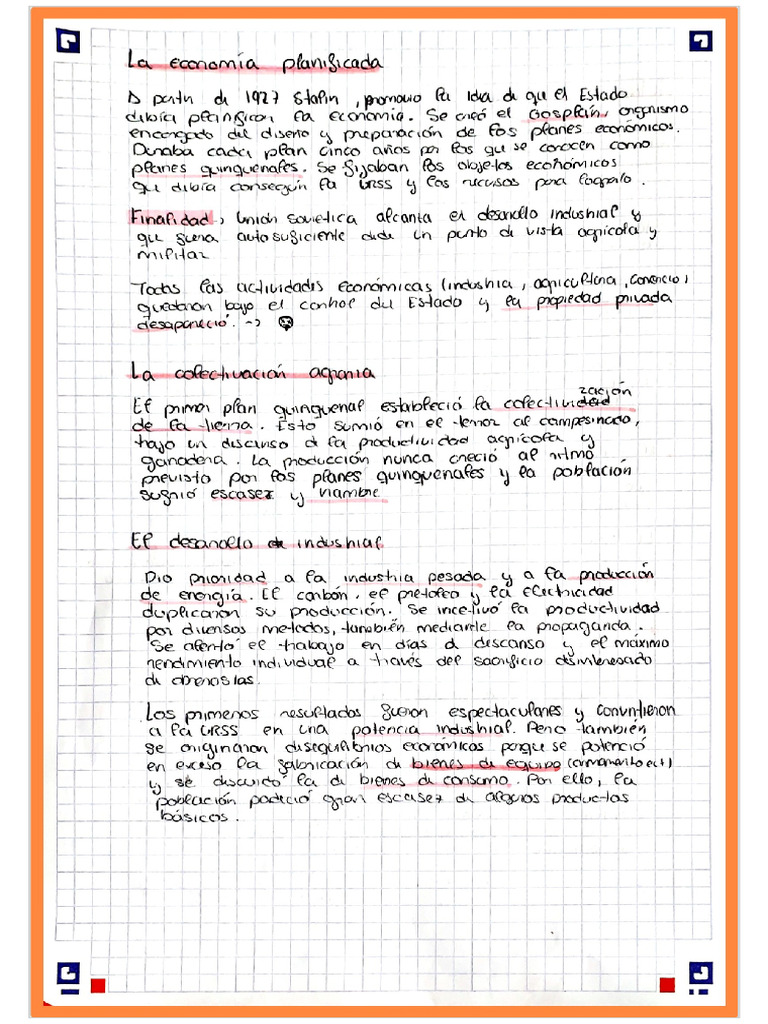 La economía planificada
A partir de 1927 Stalin, promovio la idea de que el Estado
dibia planificar la economia. Se creó el Gosplan, organismo
encargado del diseño y preparación de los planes económicos.
Duraba cada plan cinco años por los que se conocen como
planes quinquenales. Se fijaban los objetos económicos
que dibia conseguir la URSS y los recursos para lograrlo.
Finalidad, Union Sovietica alcanta el desarollo industrial y
que fuera autosuficiente dede un punto di vista agricola y
militar
Todas las actividades económicas (industria, agricultura, comercio)
quedaron bajo el control del Estado y la propiedad privada
desapareció. ->
La colectivación agraria
El primer plan quinquenal estableció la colectividad zación
de la tierra. Esto sumió en el temor al campesinado,
bajo un discurso d la productividad agricola y
ganadera. La producción nunca creció al ritmo
previsto por los planes quinquenales y la población
sufrió escasez y hambre.
El desarollo industrial
Dio prioridad a la industria pesada y a la producción
de energía. El carbón, el pretoleo y la electricidad
duplicaron su producción. Se incetivó la productividad
por diversos metodos, también mediante la propaganda.
Se alentó el trabajo en días d descanso y el máximo
rendimiento individual a través del sacrificio desinteresado
de obreros/as.
Los primeros resultados fueron espectaculares y convirtieron
a la URSS en una potencia industrial. Pero también
se originaron disequilibrios económicos porque se potenció
en exceso la fabricación de bienes de equipo (armamento ect)
y se discuidó la di bienes de consumo. Por ello, la
población padeció gran escasez de algunos productos
básicos.